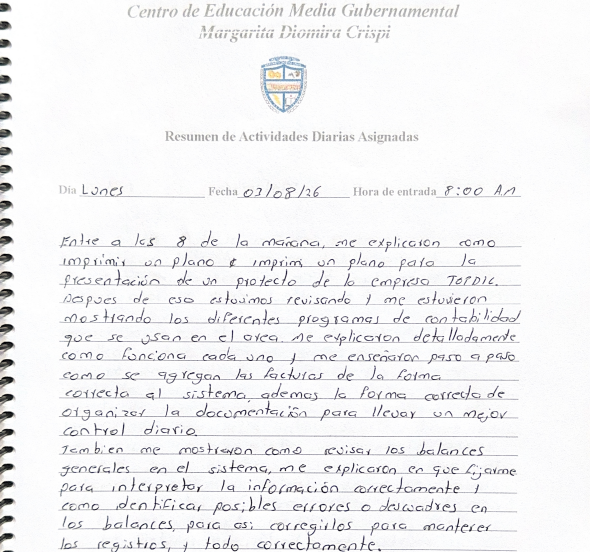 Centro de Educación Media Gubernamental
Margarita Diomira Crispi
Resumen de Actividades Diarias Asignadas
Día Lunes Fecha 03/08/26 Hora de entrada 8:00 A.M
Entre a las 8 de la mañana, me explicaron como
imprimir un plano e imprimi un plano para la
presentación de un protecto de la empresa TOPDIC.
Despues de eso estuvimos revisando y me estuvieron
mostrando los diferentes programas de contabilidad
que se usan en el area. Me explicaron detalladamente
como funciona cada uno y me enseñaron paso a paso
como se agregan las facturas de la forma
correcta al sistema, ademas la forma correcta de
organizar la documentación para llevar un mejor
control diario.
Tambien me mostraron como revisar los balances
generales en el sistema, me explicaron en que fijarme
para interpretar la información correctamente y
como identificar posibles errores o descuadres en
los balances, para asi corregirlos para mantener
los registros, y todo correctamente.